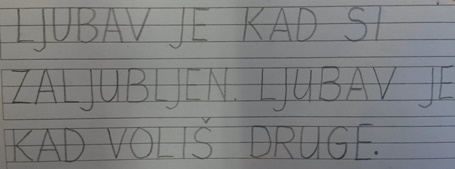 LJUBAV JE KAD SI
ZALJUBLJEN. LJUBAV JE
KAD VOLIŠ DRUGE.